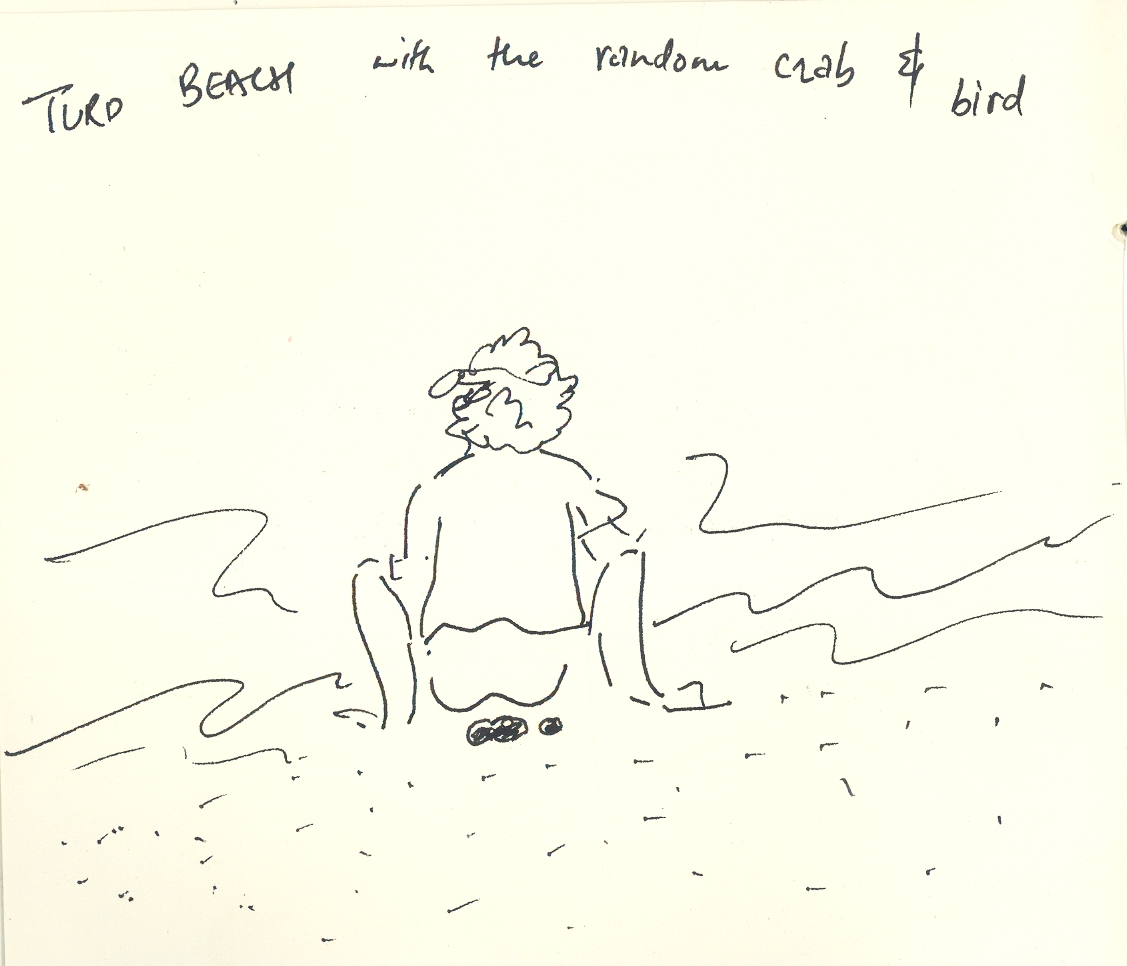 TURD BEACH with the random crab & bird